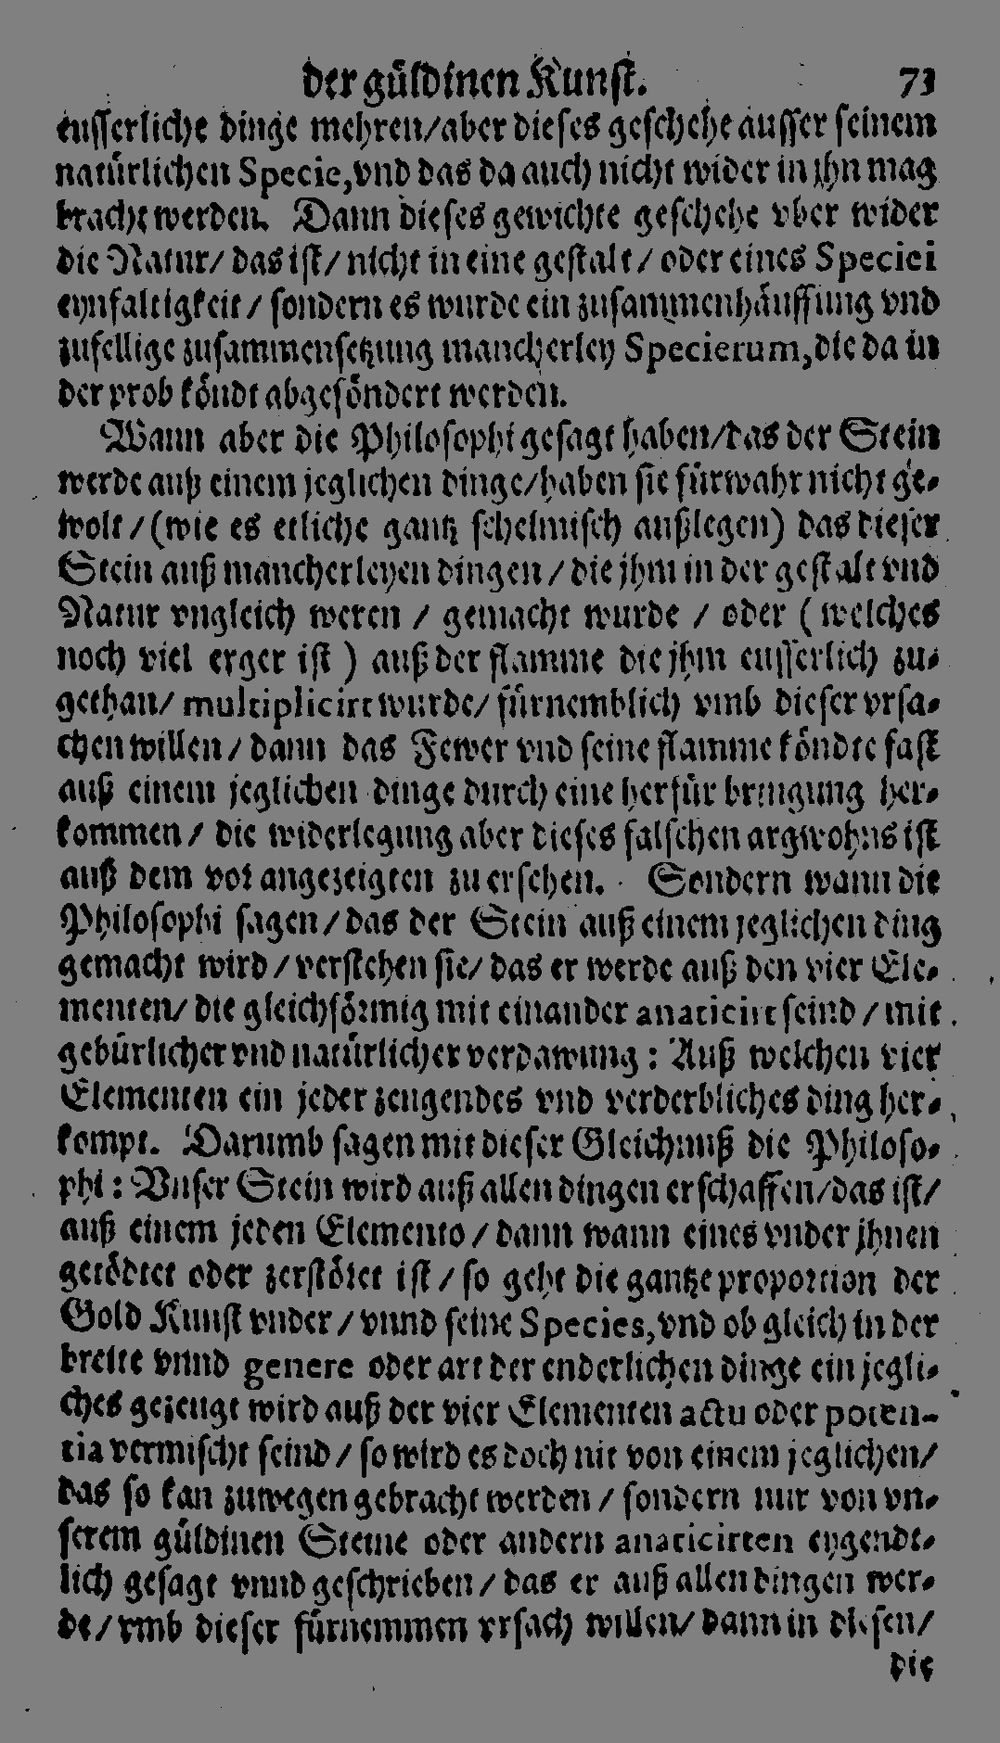 der güldinen Kunst. 73
eusserliche dinge mehren/aber dieses geschehe ausser seinem
natürlichen Specie,vnd das da auch nicht wider in jhn mag
bracht werden. Dann dieses gewichte geschehe vber wider
die Natur/ das ist/ nicht in eine gestalt/ oder eines Speciei
eynfaltigkeit/ sondern es wurde ein zusammenhäuffung vnd
zufellige zusammensetzung mancherley Specierum,die da in
der prob köndt abgesöndert werden.
Wann aber die Philosophi gesagt haben/das der Stein
werde auß einem jeglichen dinge/haben sie fürwahr nicht ge-
wolt/(wie es etliche gantz schelmisch außlegen) das dieser
Stein auß mancherleyen dingen/die jhm in der gestalt vnd
Natur vngleich weren / gemacht wurde / oder (welches
noch viel erger ist) auß der flamme die jhm eusserlich zu-
gethan/ multiplicirt wurde/ fürnemblich vmb dieser vrsa-
chen willen/ dann das Fewer vnd seine flamme köndte fast
auß einem jeglichen dinge durch eine herfür bringung her-
kommen/ die widerlegung aber dieses falschen argwohns ist
auß dem vor angezeigten zu ersehen. Sondern wann die
Philosophi sagen/das der Stein auß einem jeglichen ding
gemacht wird/verstehen sie/ das er werde auß den vier Ele-
menten/ die gleichförmig mit einander anaticirt seind/mit
gebürlicher vnd natürlicher verdawung: Auß welchen vier
Elementen ein jeder zeugendes vnd verderbliches ding her-
kompt. Darumb sagen mit dieser Gleichnuß die Philoso-
phi: Vnser Stein wird auß allen dingen erschaffen/das ist/
auß einem jeden Elemento/dann wann eines vnder jhnen
getödtet oder zerstöret ist/so geht die gantze proportion der
Gold Kunst vnder/ vnnd seine Species,vnd ob gleich in der
breite vnnd genere oder art der enderlichen dinge ein jegli-
ches gezeugt wird auß der vier Elementen actu oder poten-
tia vermischt seind/so wird es doch nit von einem jeglichen/
das so kan zuwegen gebracht werden/ sondern nur von vn-
serem güldinen Steine oder andern anaticirten eygendt-
lich gesagt vnnd geschrieben/das er auß allen dingen wer-
de/vmb dieser fürnemmen vrsach willen/dann in diesen/
die